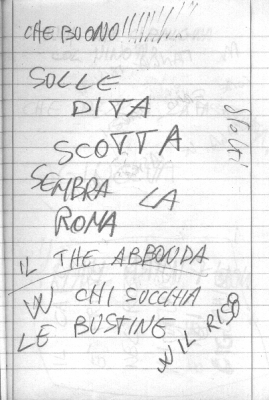 CHE BUONO!!!!!!!
SULLE
DITA
SCOTTA
SEMBRA LA
ROMA
IL THE ABBONDA
W CHI SUCCHIA
LE BUSTINE
W IL RISO